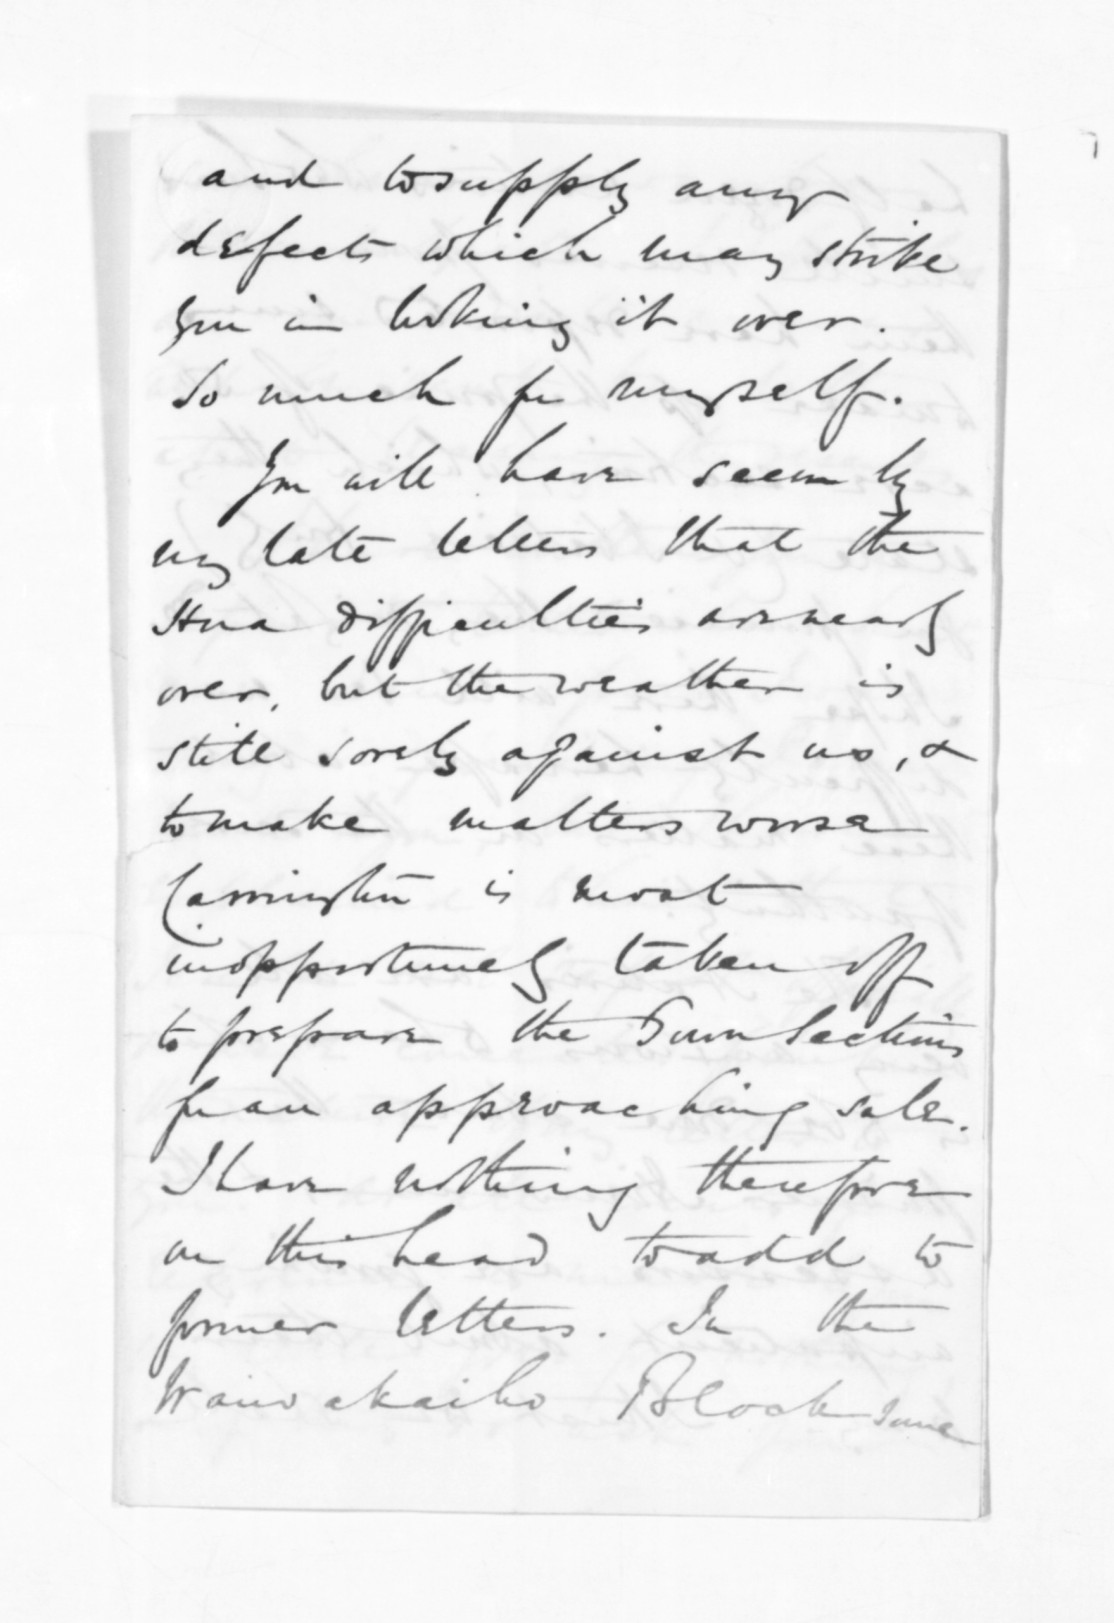 and to supply any
defects which may strike
you in looking it over.
So much for myself.
You will have seen by
my late letters that the
Hua difficulties are nearly
over, but the weather is
still sorely against us, &
to make matters worse
Carrington is most
inopportunely taken off
to prepare the Town Sections
for an approaching sale.
I have nothing therefore
on this head to add to
former letters. In the
Waiwakaiho Block some